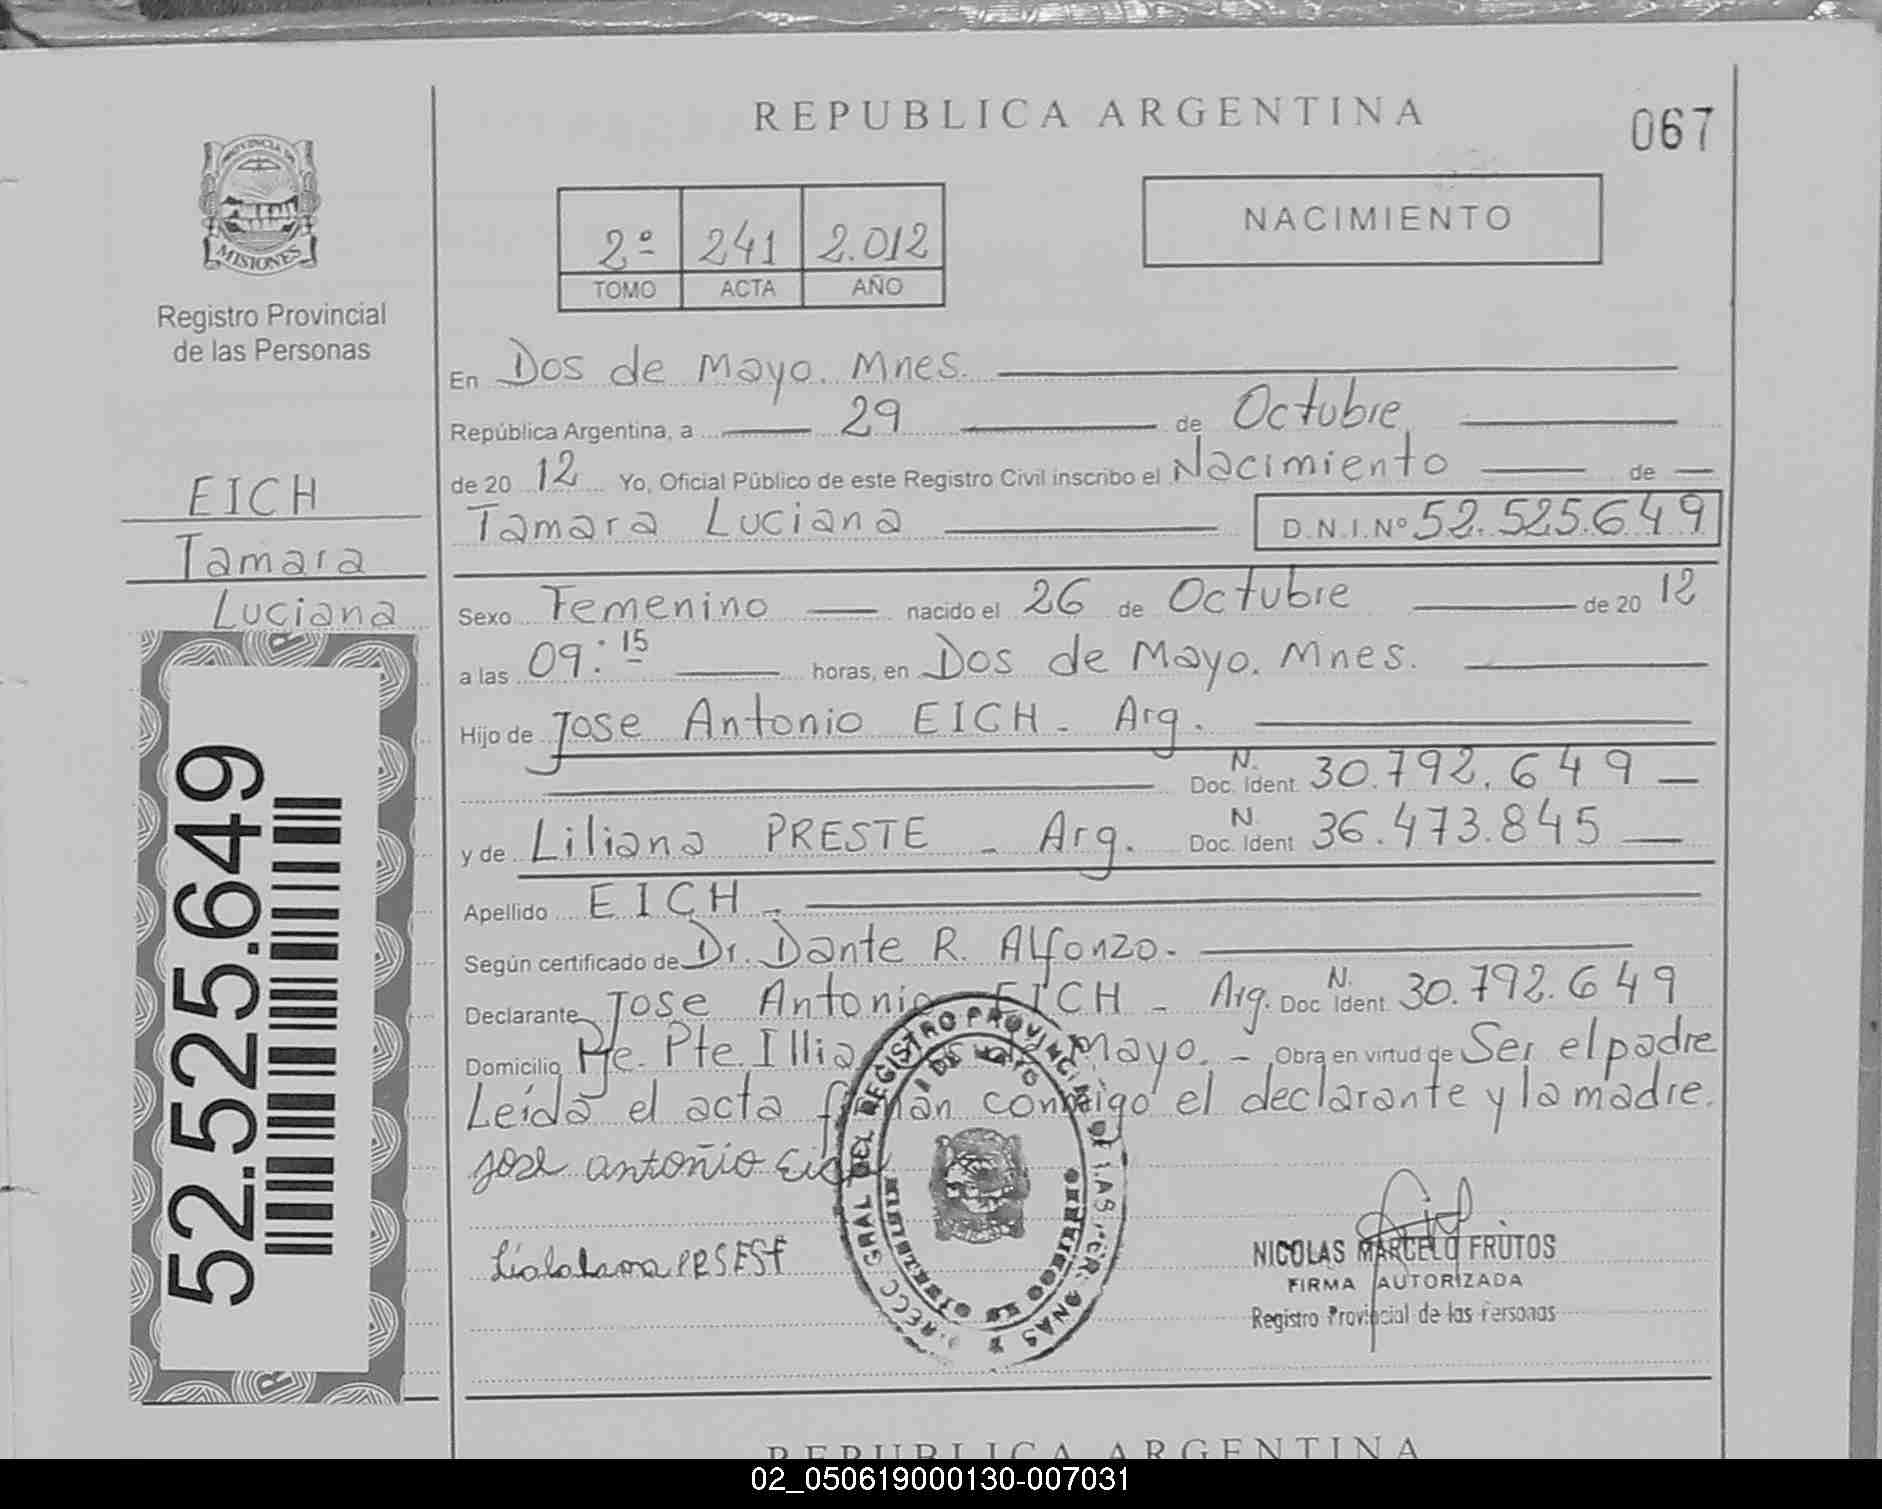 REPUBLICA ARGENTINA
067
PROVINCIA DE
MISIONES
Registro Provincial
de las Personas
2º 241 2.012
TOMO ACTA AÑO
NACIMIENTO
EICH
Tamara
Luciana
52.525.649
En Dos de Mayo. Mnes.
República Argentina, a 29 de Octubre
de 20 12 Yo, Oficial Público de este Registro Civil inscribo el Nacimiento de
Tamara Luciana D.N.I.Nº 52.525.649
Sexo Femenino nacido el 26 de Octubre de 20 12
a las 09:15 horas, en Dos de Mayo. Mnes.
Hijo de Jose Antonio EICH - Arg.
N. Doc. Ident. 30.792.649
y de Liliana PRESTE - Arg. N. Doc. Ident 36.473.845
Apellido EICH -
Según certificado de Dr. Dante R. Alfonzo-
Declarante Jose Antonio EICH - Arg. N. Doc. Ident. 30.792.649
Domicilio Pte. Illia Mayo. - Obra en virtud de Ser el padre
Leída el acta firman conmigo el declarante y la madre.
Jose antoñio Eich
NICOLAS MARCELO FRUTOS
FIRMA AUTORIZADA
Registro Provincial de las Personas
REPUBLICA ARGENTINA
02_050619000130-007031